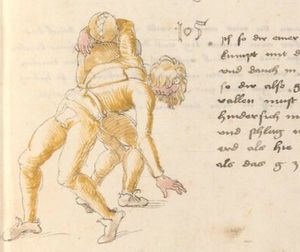 105
so dir einer
kumpt mit d
und dauch in
so dir also g
vallen must
hindersich in
und schlag in
erd als hie
als das g 3